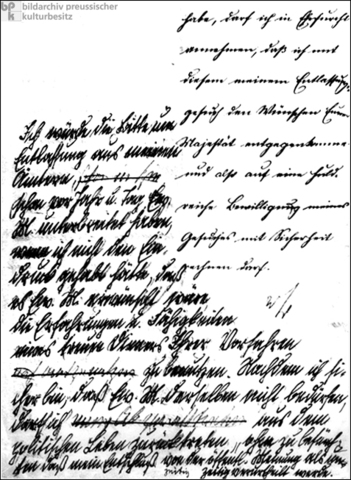 bildarchiv preussischer
kulturbesitz
habe, darf ich in Ehrfurcht
annehmen, daß ich mit
diesem meinem Entlassungs-
gesuch den Wünschen Eurer
Majestät entgegenkomme
und also auf eine huld-
reiche Bewilligung meines
Gesuches mit Sicherheit
rechnen darf.
Ich würde die Bitte um
Entlassung aus meinen
Ämtern
schon vor Jahr u. Tag Ew.
M. unterbreitet haben,
wenn ich nicht den Ein-
druck gehabt hätte, daß
es Ew. M. erwünscht wäre
die Erfahrungen u. Fähigkeiten
eines treuen Dieners Ihrer Vorfahren
zu benutzen. Nachdem ich si-
cher bin, daß Ew. M. derselben nicht bedürfen,
darf ich aus dem
politischen Leben zurücktreten, ohne zu befürch-
ten daß mein Entschluß von der öffentl. Meinung als un-
zeitig verurtheilt werde.